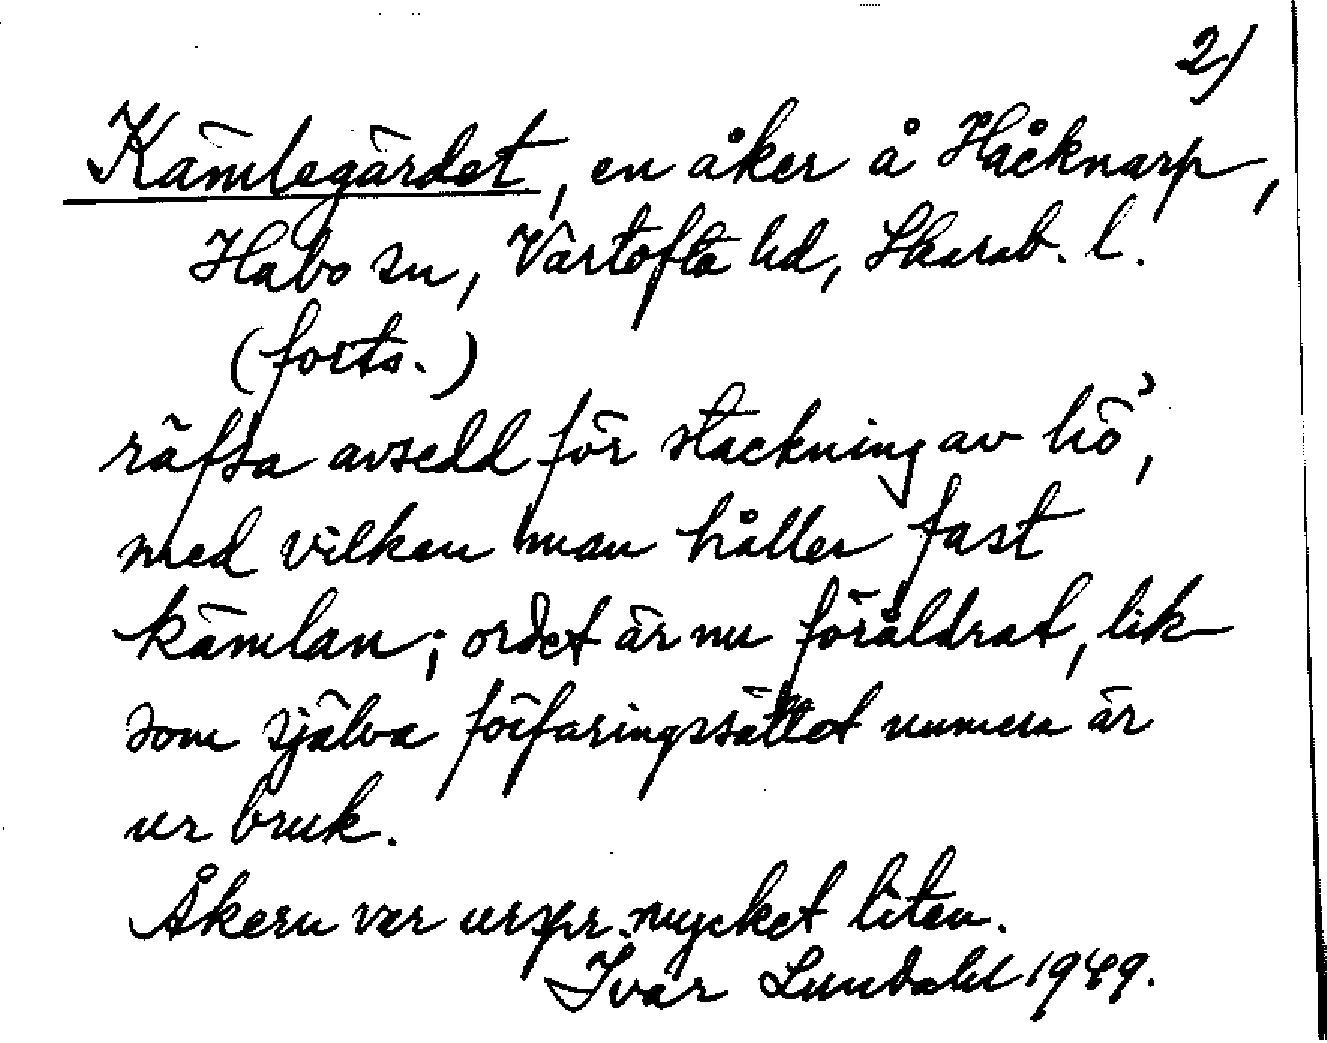 2)
Kämlegärdet, en åker å Håcknarp,
Habo sn, Vartofta hd, Skarab. l.
(forts.)
räfsa avsedd för stackning av hö”,
med vilken man håller fast
kämlan; ordet är nu föråldrat, lik-
som själva förfaringssättet numera är
ur bruk.
Åkern var urspr. mycket liten.
Ivar Lundahl 1949.